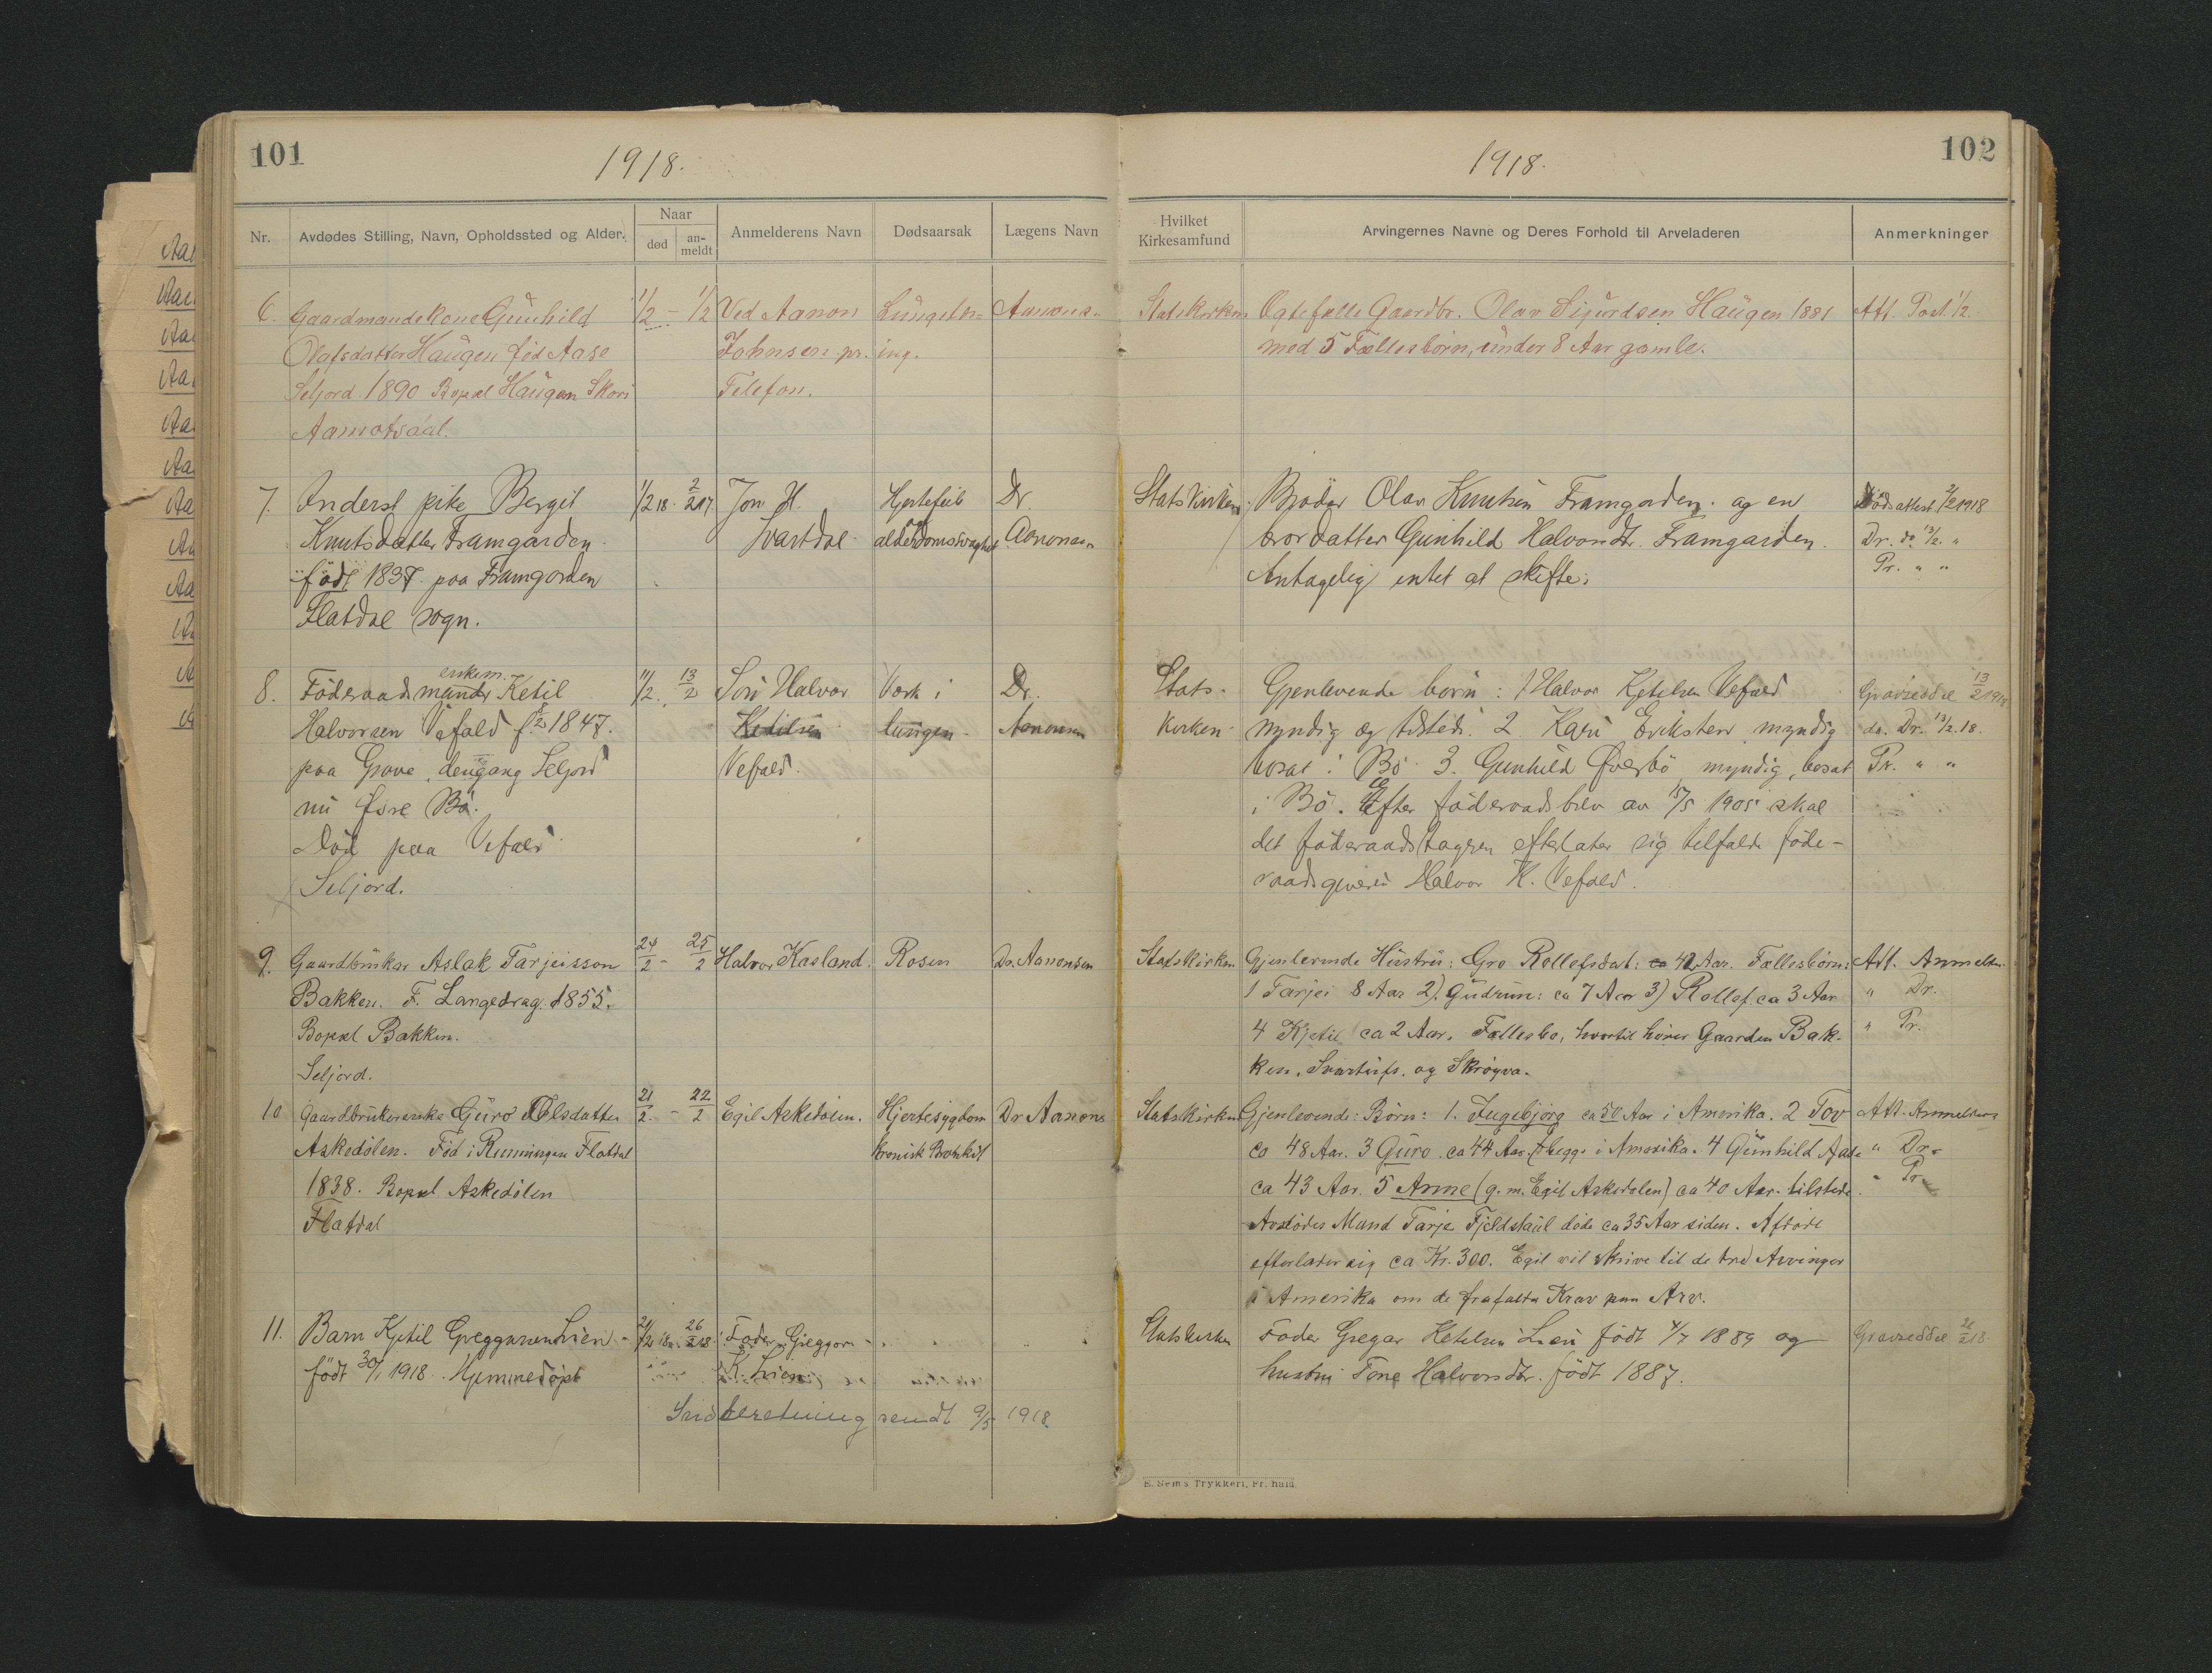 101
1918.
Nr.
Avdødes Stilling, Navn, Opholdssted og Alder.
Naar
død
an-
meldt
Anmelderens Navn
Dødsaarsak
Lægens Navn
6. Gaardmandskone Gunhild 1/2 - 1/2 Ved Aanon
Olafsdatter Haugen fød Aase Johnsen pr. ing.
Seljord 1890 Bopæl Haugen Telefon.
Aamotsdal.
7. Inderst pike Bergit 1/2 18. 2/2 17. Jon H. Hjertefeil Dr.
Knutsdatter Framgarden. Svartdal. alderdomsvaghet Aanonsen
født 1837. paa Framgarden
Flatdal sogn.
enkem.
8. Föderaadsmand Ketil 11/2. 13/2 Sön Halvor Værk i Dr.
Halvorsen Vefald f. 1847. Ketilsen lungen. Aanonsen
paa Grave, dengang Seljord Vefald.
nu Øvre Bö.
Död paa Vefald
Seljord.
9. Gaardbruker Aslak Tarjeisson 24/2 - 25/2 Halvor Kasland. Rosen Dr. Aanonsen
Bakken. F. Langedrag. 1855.
Bopæl Bakken.
Seljord.
10 Gaardbrukerenke Guro Olsdatter 21/2. - 22/2 Egil Askedalen. Hjertesygdom Dr Aanons
Askedölen. Fød i Runningen Flatdal kronisk Bronkit
1838. Bopæl Askedölen
Flatdal
11. Barn Kjetil Greggarsen Lien 26/2 18. Fader Gjeggar
født 30/1 1918. Hjemmedöpt K. Lien
Indberetning sendt 9/3 1918.
102
1918.
Hvilket
Kirkesamfund
Arvingernes Navne og Deres Forhold til Arveladeren
Anmerkninger
Statskirken Ægtefælle Gaardbr. Olav Sijurdsen Haugen 1881 Att. Post. 1/2.
med 5 Fællesbörn, under 8 Aar gamle.
Statskirken. Broder Olav Knutsen Framgarden. og en Dödsattest 2/2 1918
brordatter Gunhild Halvorsdtr. Framgarden. Dr. do. 13/2. "
Antagelig intet at skifte. Pr. " "
Stats- Gjenlevende börn: 1 Halvor Kjetilsen Vefald Gravseddel 13/2 1918
kirken. myndig og tilstede. 2 Kari Eriksten myndig do. Dr. 13/2.18.
bosat i Bö. 3. Gunhild Øverbö myndig, bosat Pr. " "
i Bö. Efter föderaadsbrev av 15/5 1905 skal
det föderaadstageren efterlater sig tilfalde föde-
raadsgiveren Halvor K. Vefald.
Statskirken Gjenlevende Hustru: Gro Rollefsdat: 42 Aar. Fællesbörn: Att. Anmelder.
1 Tarjei 8 Aar 2). Gudrun: ca 7 Aar 3) Rollef. ca 3 Aar " Dr.
4 Kjetil ca 2 Aar. Fællesbo, hvortil hörer Gaarden Bak- " Pr.
ken, og Skrøyva.
Statskirken Gjenlevende: Börn: 1. Ingebjörg ca 50 Aar i Amerika. 2 Tov Att. Anmelder
ca 48 Aar. 3 Guro ca 44 Aar. begge i Amerika. 4 Gunhild Aase " Dr.
ca 43 Aar. 5 Anne (g. m. Egil Askedalen) ca 40 Aar. tilstede. " Pr.
Avdödes Mand Tarje Fjeldstaul döde ca 35 Aar siden. Afdöde
efterlader sig ca Kr. 300. Egil vil skrive til de tre Arvinger
i Amerika om de frafalde Krav paa Arv.
Statskirken Fader Gregar Ketilsen Lien født 4/7 1889 og Gravseddel 26/2 18
hustru Tone Halvorsdtr. født 1887.
E. Sem's Trykkeri, Fr.hald